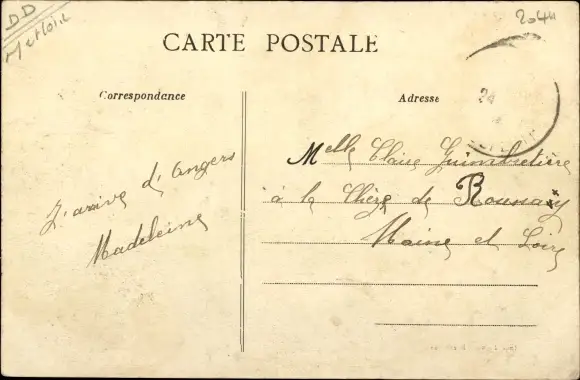 DD
M et Loire
2044
CARTE POSTALE
Correspondance
Adresse
24
J'arrive d'Angers
Madeleine
Melle Claire Guimbretière
à la Thèze de
Maine et Loire